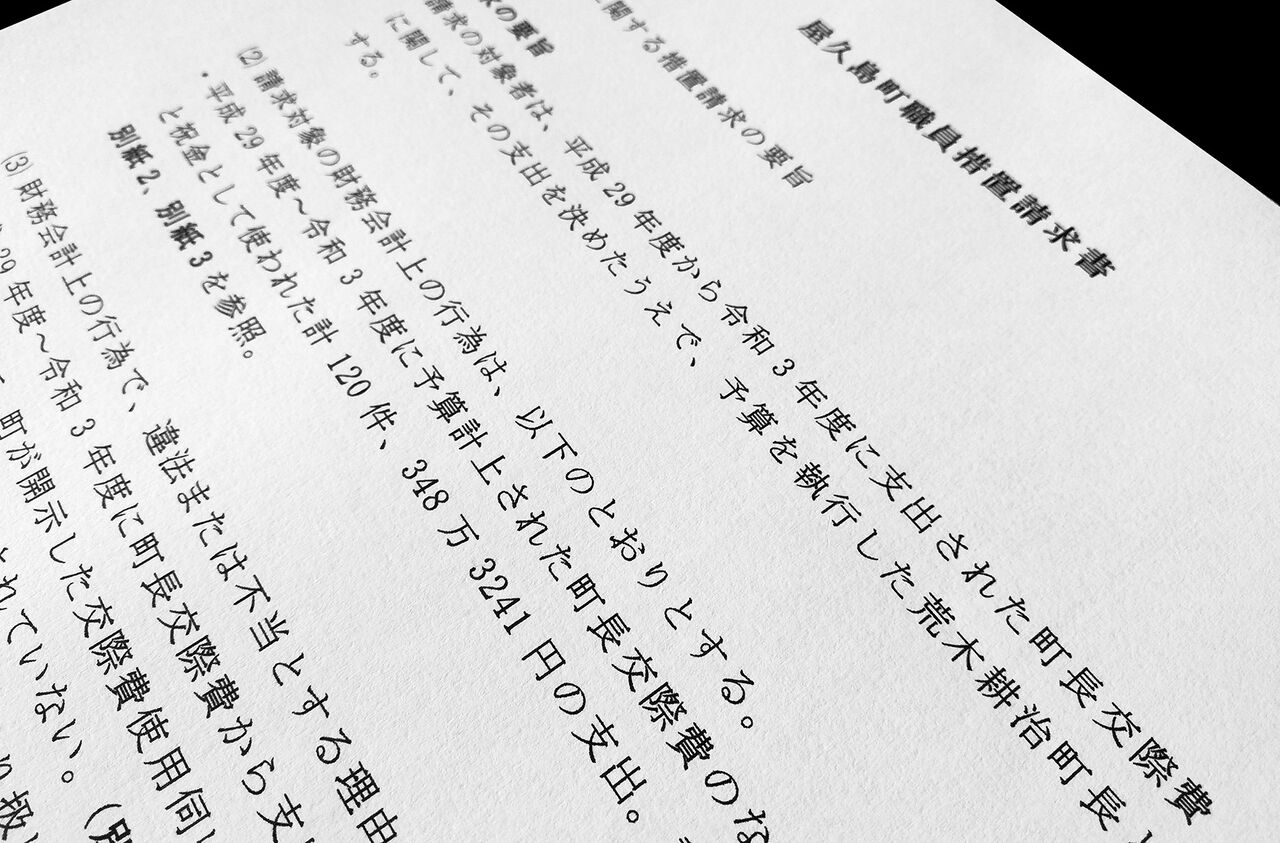 屋久島町職員措置請求書
関する措置請求の要旨
求の要旨
請求の対象者は、平成 29 年度から令和 3 年度に支出された町長交際費
に関して、その支出を決めたうえで、予算を執行した荒木耕治町長と
する。
(2) 請求対象の財務会計上の行為は、以下のとおりとする。
・平成 29 年度～令和 3 年度に予算計上された町長交際費のな
と祝金として使われた計 120 件、348 万 3241 円の支出。
別紙 2、別紙 3 を参照。
(3) 財務会計上の行為で、違法または不当とする理由
29 年度～令和 3 年度に町長交際費から支
町が開示した交際費使用伺
れていない。(別
扱